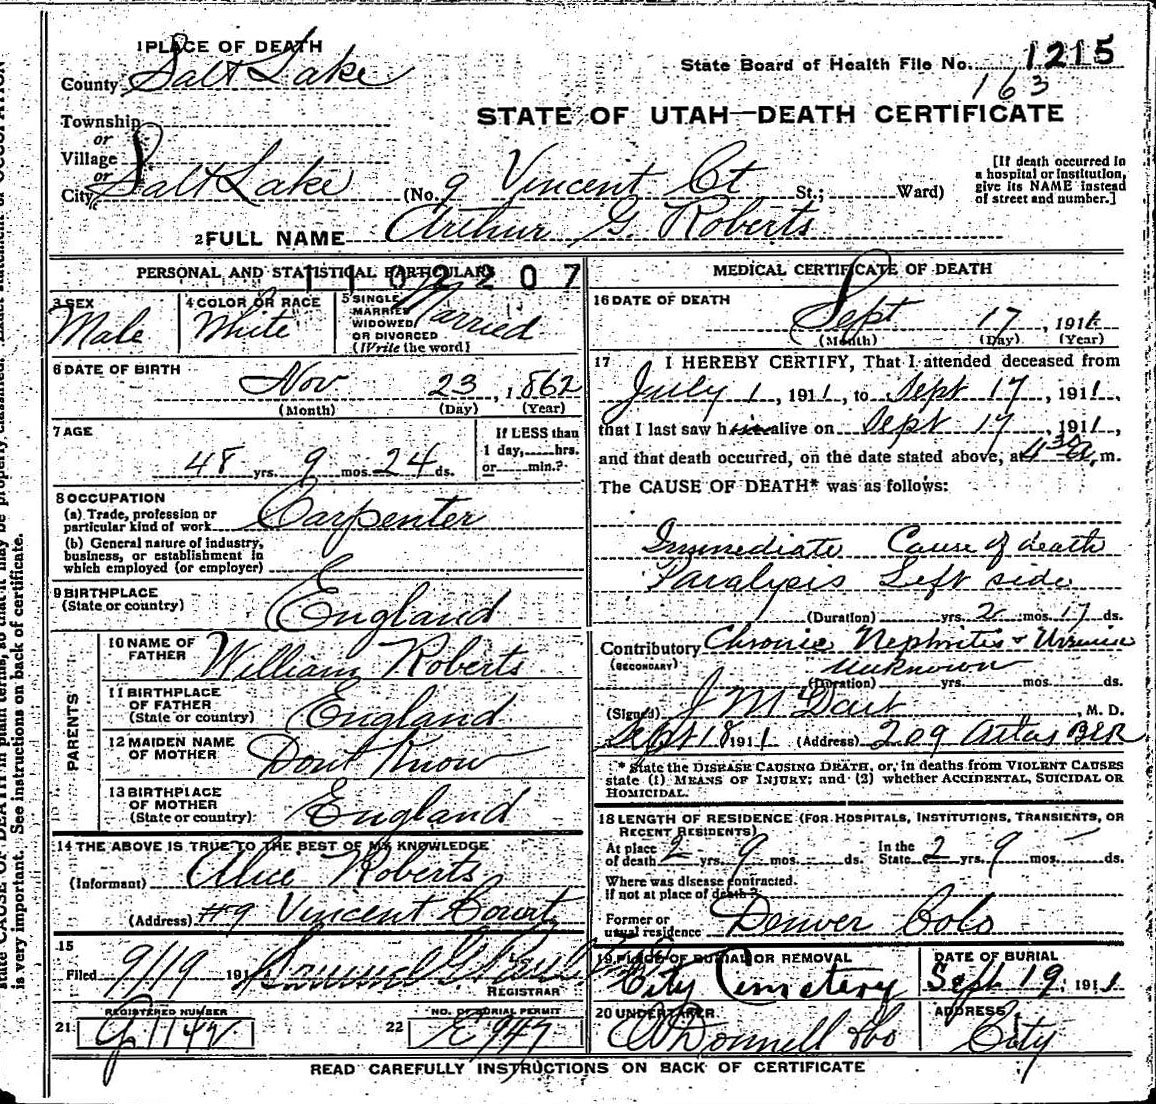 1 PLACE OF DEATH
County Salt Lake
State Board of Health File No. 1215
163
STATE OF UTAH—DEATH CERTIFICATE
Township
or
Village
or
City Salt Lake (No. 9 Vincent Ct St.; Ward)
[If death occurred in a hospital or institution, give its NAME instead of street and number.]
2 FULL NAME Arthur G. Roberts
PERSONAL AND STATISTICAL PARTICULARS
1102207
3 SEX
Male
4 COLOR OR RACE
White
5 SINGLE MARRIED WIDOWED OR DIVORCED (Write the word)
Married
6 DATE OF BIRTH
Nov 23, 1862
(Month) (Day) (Year)
7 AGE
48 yrs. 9 mos. 24 ds.
If LESS than
1 day, hrs.
or min.?
8 OCCUPATION
(a) Trade, profession or
particular kind of work Carpenter
(b) General nature of industry,
business, or establishment in
which employed (or employer)
9 BIRTHPLACE
(State or country) England
PARENTS
10 NAME OF FATHER William Roberts
11 BIRTHPLACE OF FATHER (State or country) England
12 MAIDEN NAME OF MOTHER Dont Know
13 BIRTHPLACE OF MOTHER (State or country) England
14 THE ABOVE IS TRUE TO THE BEST OF MY KNOWLEDGE
(Informant) Alice Roberts
(Address) #9 Vincent Court
15
Filed 9/19 191
REGISTRAR
REGISTERED NUMBER
21
NO. OF BURIAL PERMIT
22 E 947
MEDICAL CERTIFICATE OF DEATH
16 DATE OF DEATH
Sept 17, 1911
(Month) (Day) (Year)
17 I HEREBY CERTIFY, That I attended deceased from
July 1, 1911, to Sept 17, 1911,
that I last saw him alive on Sept 17, 1911,
and that death occurred, on the date stated above, at 4 30 a. m.
The CAUSE OF DEATH* was as follows:
Immediate Cause of death
Paralysis Left side
(Duration) yrs. 2 mos. 17 ds.
Contributory Chronic Nephritis & Uremia
(SECONDARY) unknown
(Duration) yrs. mos. ds.
(Signed) J M Dart, M. D.
Sept 18 1911 (Address) 209 Atlas Blk
* State the DISEASE CAUSING DEATH, or, in deaths from VIOLENT CAUSES
state (1) MEANS OF INJURY; and (2) whether ACCIDENTAL, SUICIDAL OR
HOMICIDAL.
18 LENGTH OF RESIDENCE (FOR HOSPITALS, INSTITUTIONS, TRANSIENTS, OR
RECENT RESIDENTS)
At place of death 2 yrs. 9 mos. ds. In the State 2 yrs. 9 mos. ds.
Where was disease contracted.
If not at place of death?
Former or usual residence Denver Colo
19 PLACE OF BURIAL OR REMOVAL
City Cemetery
DATE OF BURIAL
Sept 19, 1911
20 UNDERTAKER
O'Donnell & Co
ADDRESS
City
READ CAREFULLY INSTRUCTIONS ON BACK OF CERTIFICATE
is very important. See instructions on back of certificate.